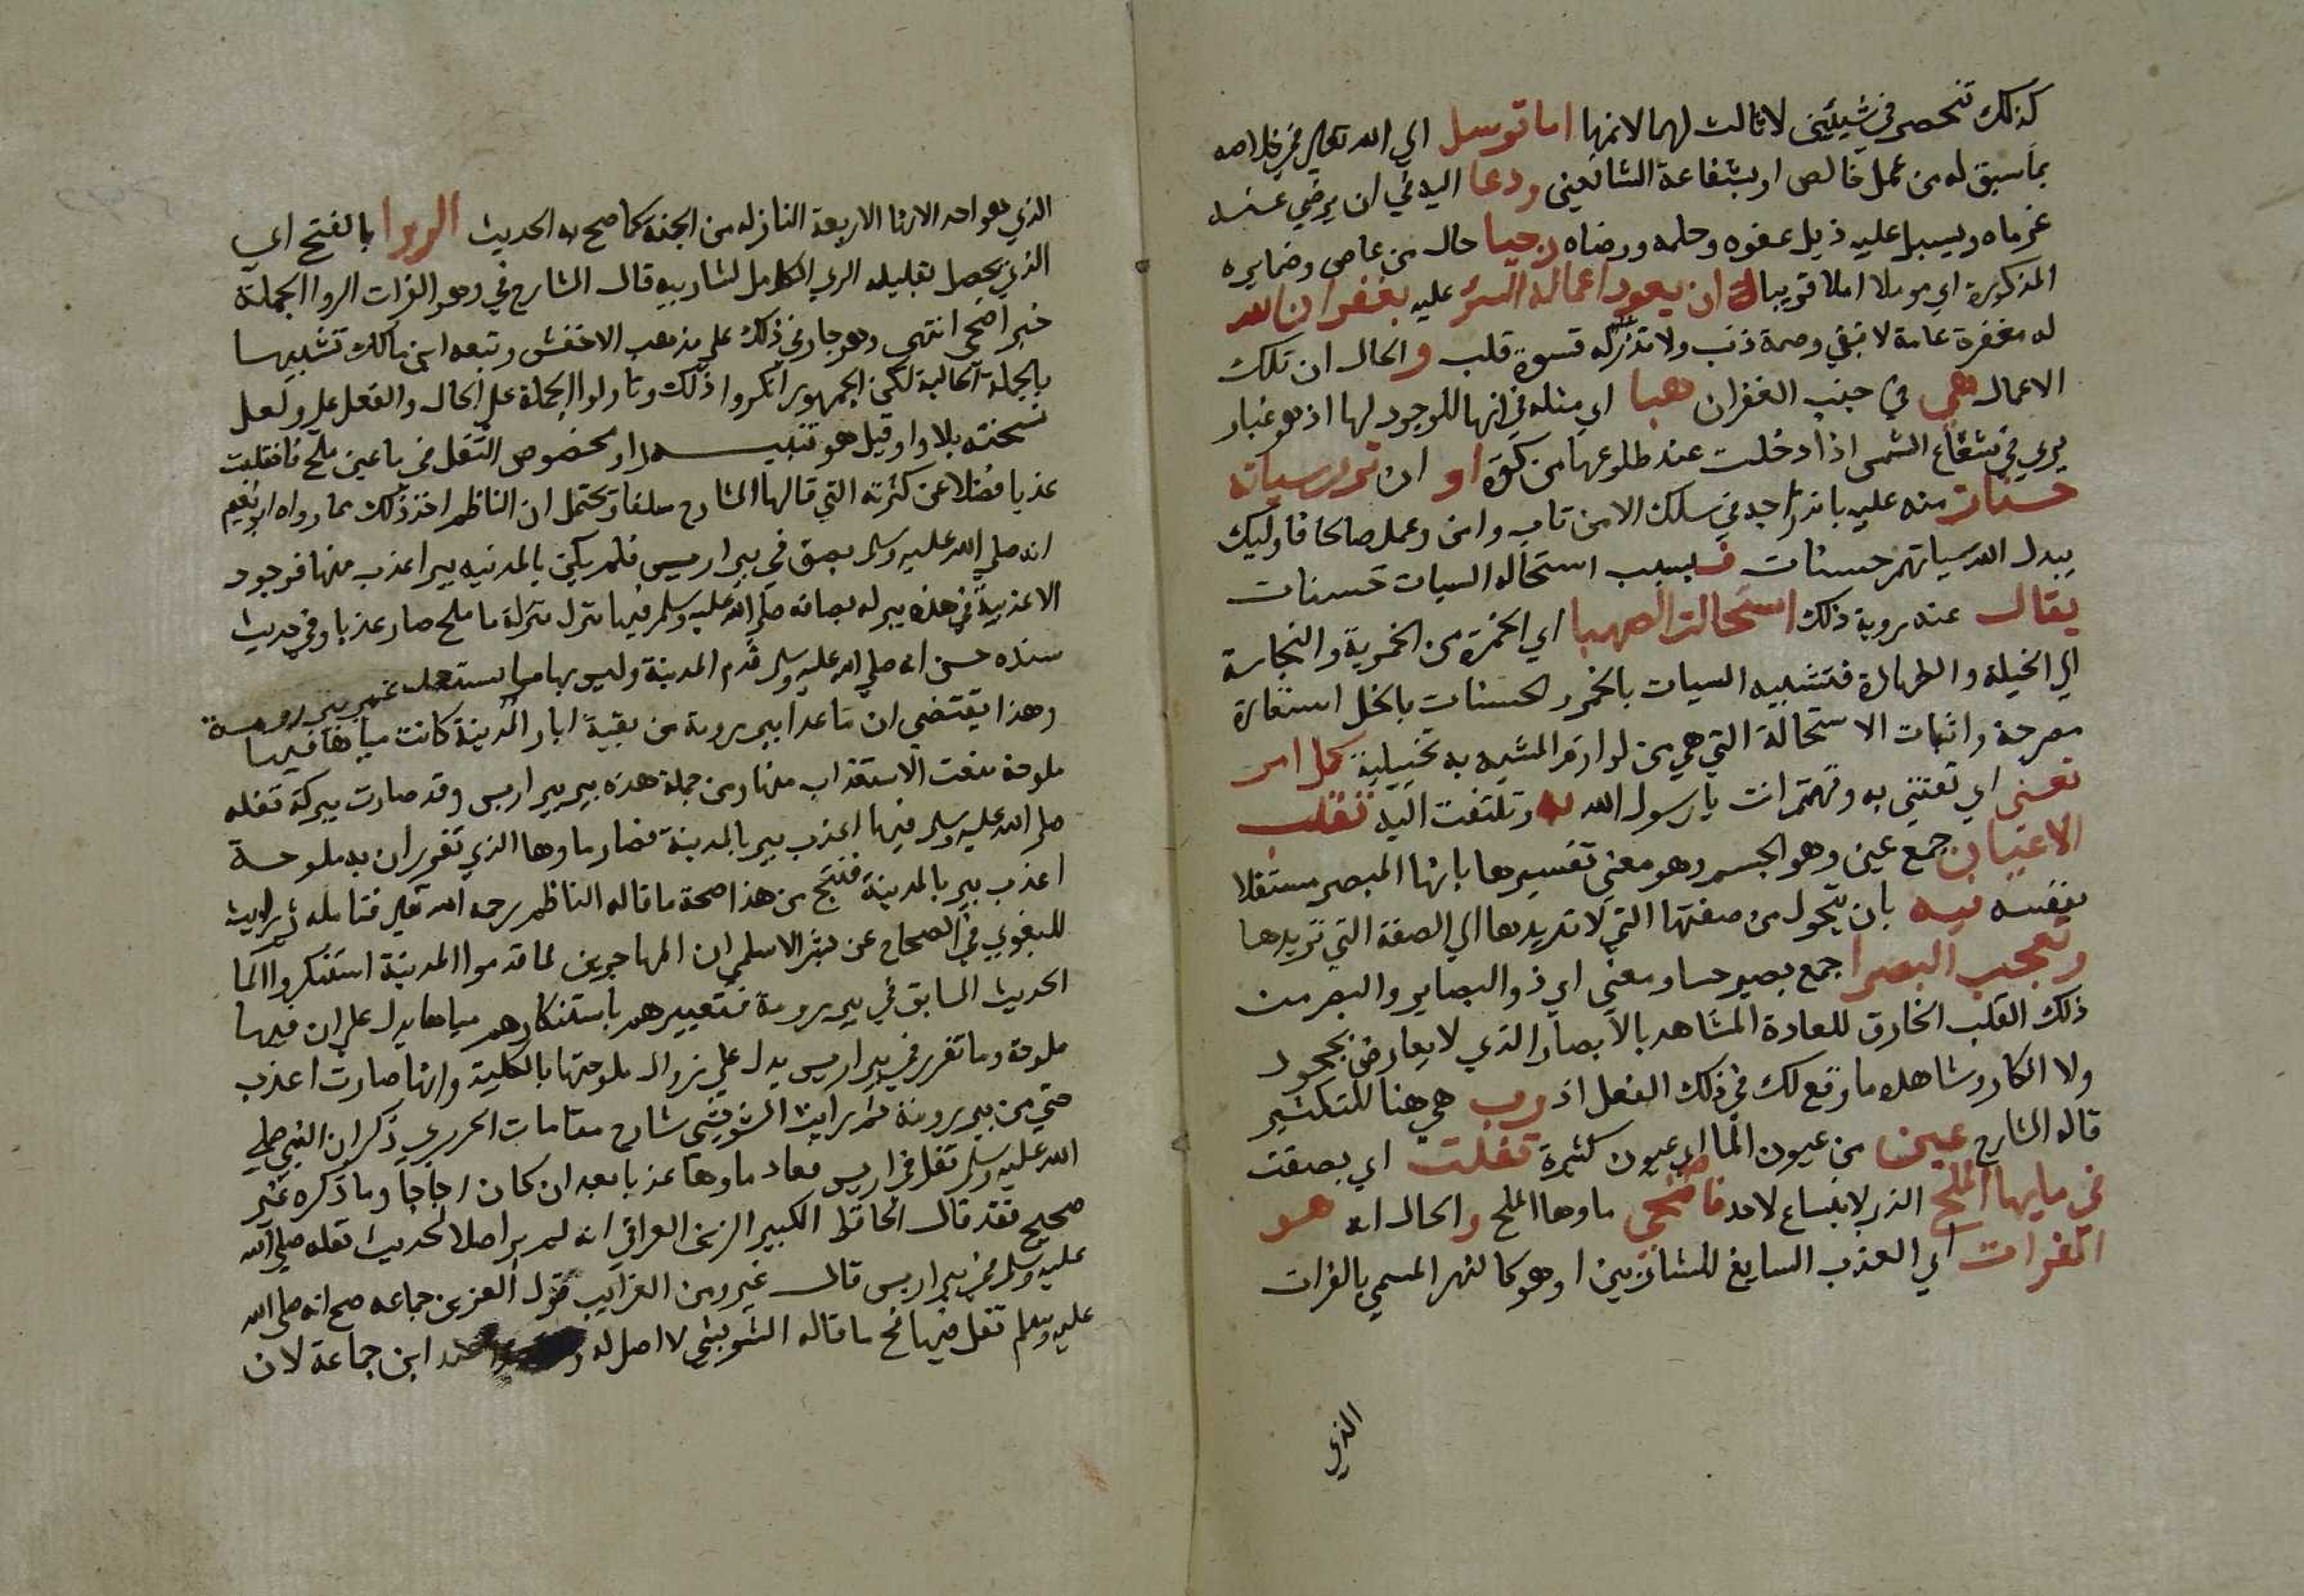 كذلك تنحصر في شيئين لا ثالث لهما لانها اما توسل الي الله تعالي في خلاصه
بما سبق له من عمل خالص او بشفاعة الشافعين ودعا اليه في ان يرضي عنه
غرماه ويسبل عليه ذيل عفوه وحلمه ورضاه رجيا حال من عاصي وضمايره
المذكورة اي موملا املا قريبا ان يعود اعماله السؤ عليه بغفران الله
له مغفرة عامة لا تبقي وصمة ذنب ولا قسوة قلب والحال ان تلك
الاعمال هي في جنب الغفران هبا اي مثله في انها لا وجود لها اذ هو غبار
يري في شعاع الشمس اذا دخلت عند طلوعها من كوة او ان تري سياته
حسنات منه عليه باندراجه في سلك الا من تاب وامن وعمل صالحا فاوليك
يبدل الله سياتهم حسنات فبسبب استحالة السيات حسنات
يقال عند روية ذلك استحالت الصهبا اي الخمرة من الخمرية والنجاسة
الي الخلية والطهارة فتشبيه السيات بالخمر والحسنات بالخل استعارة
مصرحة واثبات الاستحالة التي هي من لوازم المشبه به تخييلية كل امر
تعني اي تعتني به وتهتم انت يا رسول الله به وتلتفت اليه تقلب
الاعيان جمع عين وهو الجسم وهو معني تفسيرها بانها المبصر مستقلا
بنفسه فيه بان يتحول من صفتها التي لا تريدها الي الصفة التي تريدها
وتعجب البصرا جمع بصير حسا ومعني اي ذوو البصاير والبصر من
ذلك القلب الخارق للعادة المشاهد بالابصار الذي لا يعارض بجحود
ولا انكار وشاهده ما وقع لك في ذلك الفعل اذ رب هي هنا للتكثير
قاله الشارح عين من عيون الما اي عيون كثيرة تفلت اي بصقت
في مايها الملح الذي لا ينساغ لاحد فاضحي ماوها الملح والحال انه هو
الفرات اي العذب السايغ للشاربين او هو كالنهر المسمي بالفرات
الذي
الذي هو احد الانهار الاربعة النازلة من الجنة كما صح به الحديث الروا بالفتح اي
الذي يحصل بقليله الري الكامل لشاربيه قال الشارح في وهو الفرات الروا الجملة
خبر اضحي انتهي وهو جار في ذلك علي مذهب الاخفش وتبعه ابن مالك تشبيها
بالجملة الحالية لكن الجمهور انكروا ذلك وتاولوا الجملة علي الحال والفعل علي ولعل
نسخته بلا واو قيل هو تنبيه لم ار بخصوص التفل في ما عين ملح فانقلبت
عذبا فضلا عن كثرته التي قالها الشارح سلفا ويحتمل ان الناظم اخذ ذلك مما رواه ابو نعيم
انه صلي الله عليه وسلم بصق في بير اريس فلم يكن بالمدنيه بير اعذب منها فوجود
الاعذبية في هذه بير له بصاقه صلي الله عليه وسلم فيها تنزل منزلة ما ملح صار عذبا وفي حديث
سنده حسن انه صلي الله عليه وسلم قدم المدينة وليس بها ما يستعذب غير بير رومة
وهذا يقتضي ان ما عدا بير رومة من بقية ابار المدينة كانت مياهها فيها
ملوحة منعت الاستعذاب منها ومن جملة هذه بير بير اريس وقد صارت ببركة تفله
صلي الله عليه وسلم فيها اعذب بير بالمدينة فصار ماوها الذي تقرر ان به ملوحة
اعذب بير بالمدينة فنتج من هذا صحة ما قاله الناظم رحمه الله تعالي فتامله ثم رايت
للبغوي في الصحاح عن بشر الاسلمي ان المهاجرين لما قدموا المدينة استنكروا الما
الحديث السابق في بير رومة فتعبيرهم باستنكارهم مياهها يدل علي ان فيها
ملوحة وما تقرر في بير اريس يدل علي زوال ملوحتها بالكلية وانها صارت اعذب
حتي من بير رومة ثم رايت الشريشي شارح مقامات الحريري ذكر ان النبي صلي
الله عليه وسلم تفل في اريس فعاد ماوها عذبا بعد ان كان اجاجا وما ذكره غير
صحيح فقد قال الحافظ الكبير الزين العراقي انه لم ير اصلا لحديث تفله صلي الله
عليه وسلم في بير اريس قال غيره ومن الغرايب قول العز بن جماعه صح انه صلي الله
عليه وسلم تفل فيها نخ ما قاله الشريشي لا اصل له ابن جماعة لان